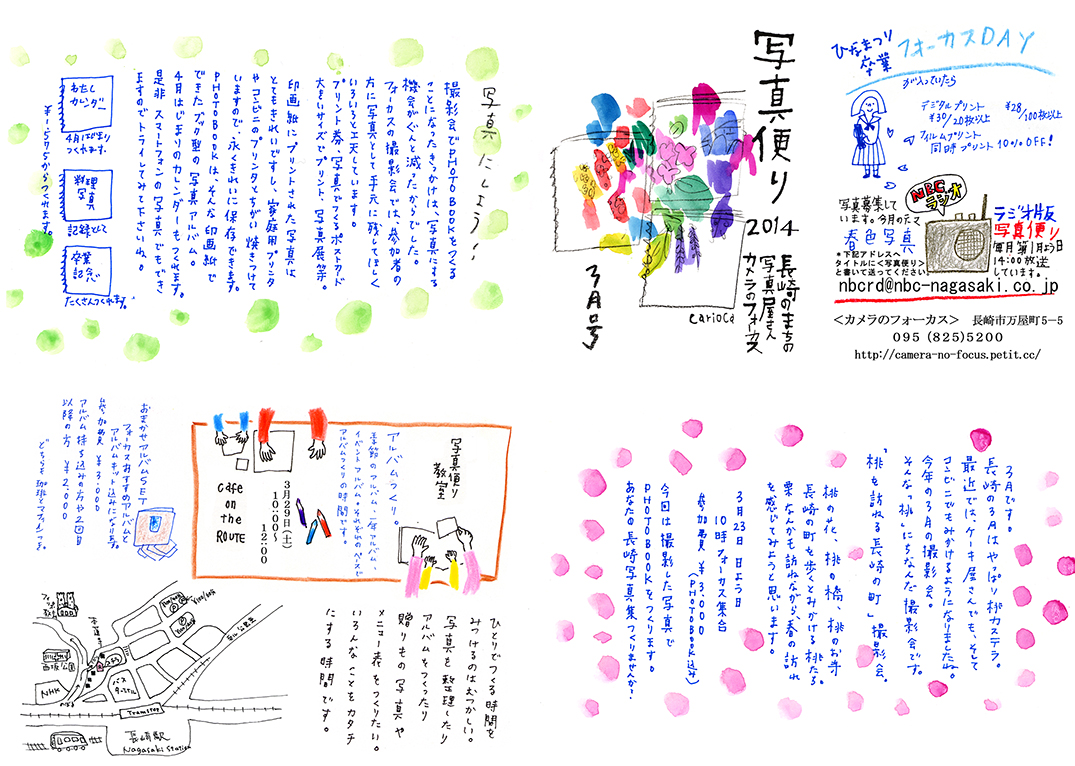 写真便り
2014
3月号
長崎のまちの
写真屋さん
カメラのフォーカス
carioca
ひなまつり
卒業
フォーカスDAY
が入っていたら
デジタルプリント
¥30/20枚以上
¥28/100枚以上
フィルムプリント
同時プリント10%OFF!
NBC
ラジオ
写真募集して
います。今月のテーマ
春色写真
*下記アドレスへ
タイトルに<写真便り>
と書いて送ってください。
ラジオ版
写真便り
毎月第1月よう日
14:00放送
しています。
nbcrd@nbc-nagasaki.co.jp
<カメラのフォーカス> 長崎市万屋町5-5
095 (825)5200
http://camera-no-focus.petit.cc/
写真にしよう!
撮影会でPHOTO BOOKをつくる
ことになったきっかけは、写真にする
機会がぐんと減ったからでした。
フォーカスの撮影会では、参加者の
方に写真として手元に残してほしく
いろいろと工夫しています。
プリント券、写真でつくるポストカード
大きいサイズでプリント、写真展等。
印画紙にプリントされた写真は
とてもきれいですし、家庭用プリンタ
やコンビニのプリンタとちがい焼きつけて
いますので、永くきれいに保存できます。
PHOTOBOOKは、そんな印画紙で
できたブック型の写真アルバム。
4月はじまりのカレンダーもつくれます。
是非 スマートフォンの写真ででもでき
ますのでトライしてみて下さいね。
¥1575からつくれます。
わたし
カレンダー
4月はじまり
つくれます。
料理
写真
記録として
卒業
記念
たくさんつくれます。
3月です。
長崎の3月はやっぱり桃カステラ。
最近では、ケーキ屋さんでも、そして
コンビニでもみかけるようになりましたね。
今年の3月の撮影会。
そんな「桃」にちなんだ撮影会です。
「桃を訪ねる長崎の町」撮影会。
桃の花、桃の橋、桃のお寺
長崎の町を歩くとみかける桃たち。
栗なんかも訪ねながら春の訪れ
を感じてみようと思います。
3月23日 日よう日
10時フォーカス集合
参加費 ¥3,000
(PHOTOBOOK込み)
今回は撮影した写真で
PHOTOBOOKをつくります。
あなたの長崎写真集つくりませんか?
写真便り
教室
アルバムつくり。
季節のアルバム、二年アルバム、
イベントアルバム。それぞれのペースで
アルバムつくりの時間です。
3月29日(土)
10:00〜
12:00
Cafe
on
the
ROUTE
おまかせアルバムSET
フォーカスおすすめのアルバムと
アルバムキット込みになります。
参加費 ¥3,000
アルバム持ち込みの方や2回目
以降の方 ¥2,000
どちらも珈琲とマフィンつき。
ひとりでつくる時間を
みつけるのはむつかしい。
写真を整理したり
アルバムをつくったり
贈りもの写真や
メニュー表をつくりたい。
いろんなことをカタチ
にする時間です。
西坂公園
NHK
バス
ターミナル
Tramstop
長崎駅
Nagasaki Station